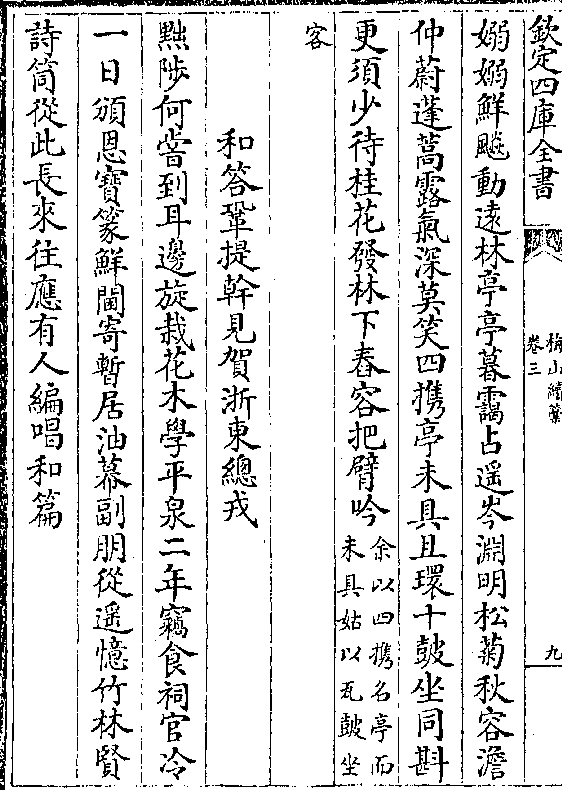 欽定四庫全書
梅山續藁
卷三
九
嫋嫋鮮飈動遠林亭亭暮靄占遥岑淵明松菊秋容澹
仲蔚蓬蒿露氣深莫笑四携亭未具且環十皷坐同斟
更須少待桂花發林下舂容把臂吟
余以四携名亭而
未具姑以瓦皷坐
客
和答鞏提幹見賀浙東總戎
黜陟何甞到耳邊旋栽花木學平泉二年竊食祠官冷
一日頒恩寶篆鮮閫寄暫居油幕副朋從遥憶竹林賢
詩筒從此長來往應有人編唱和篇